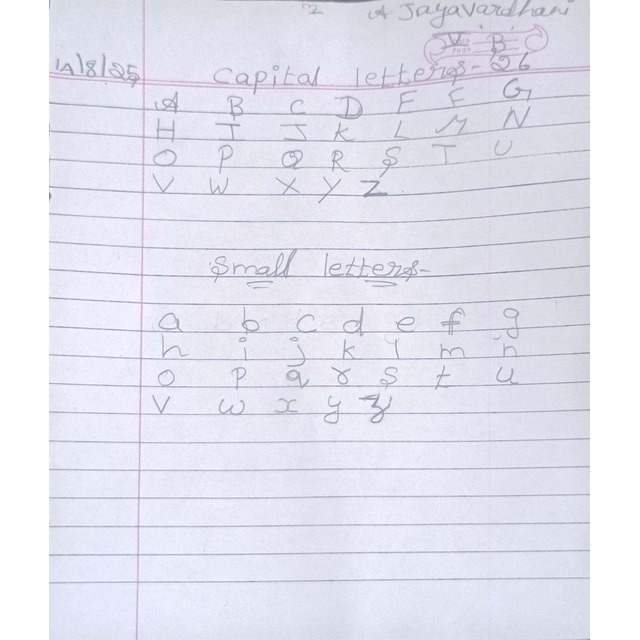 A Jayavardhani
V B
14/8/25 Capital letters - 26
A B C D E F G
H I J K L M N
O P Q R S T U
V W X Y Z
Small letters-
a b c d e f g
h i j k l m n
o p q r s t u
v w x y z